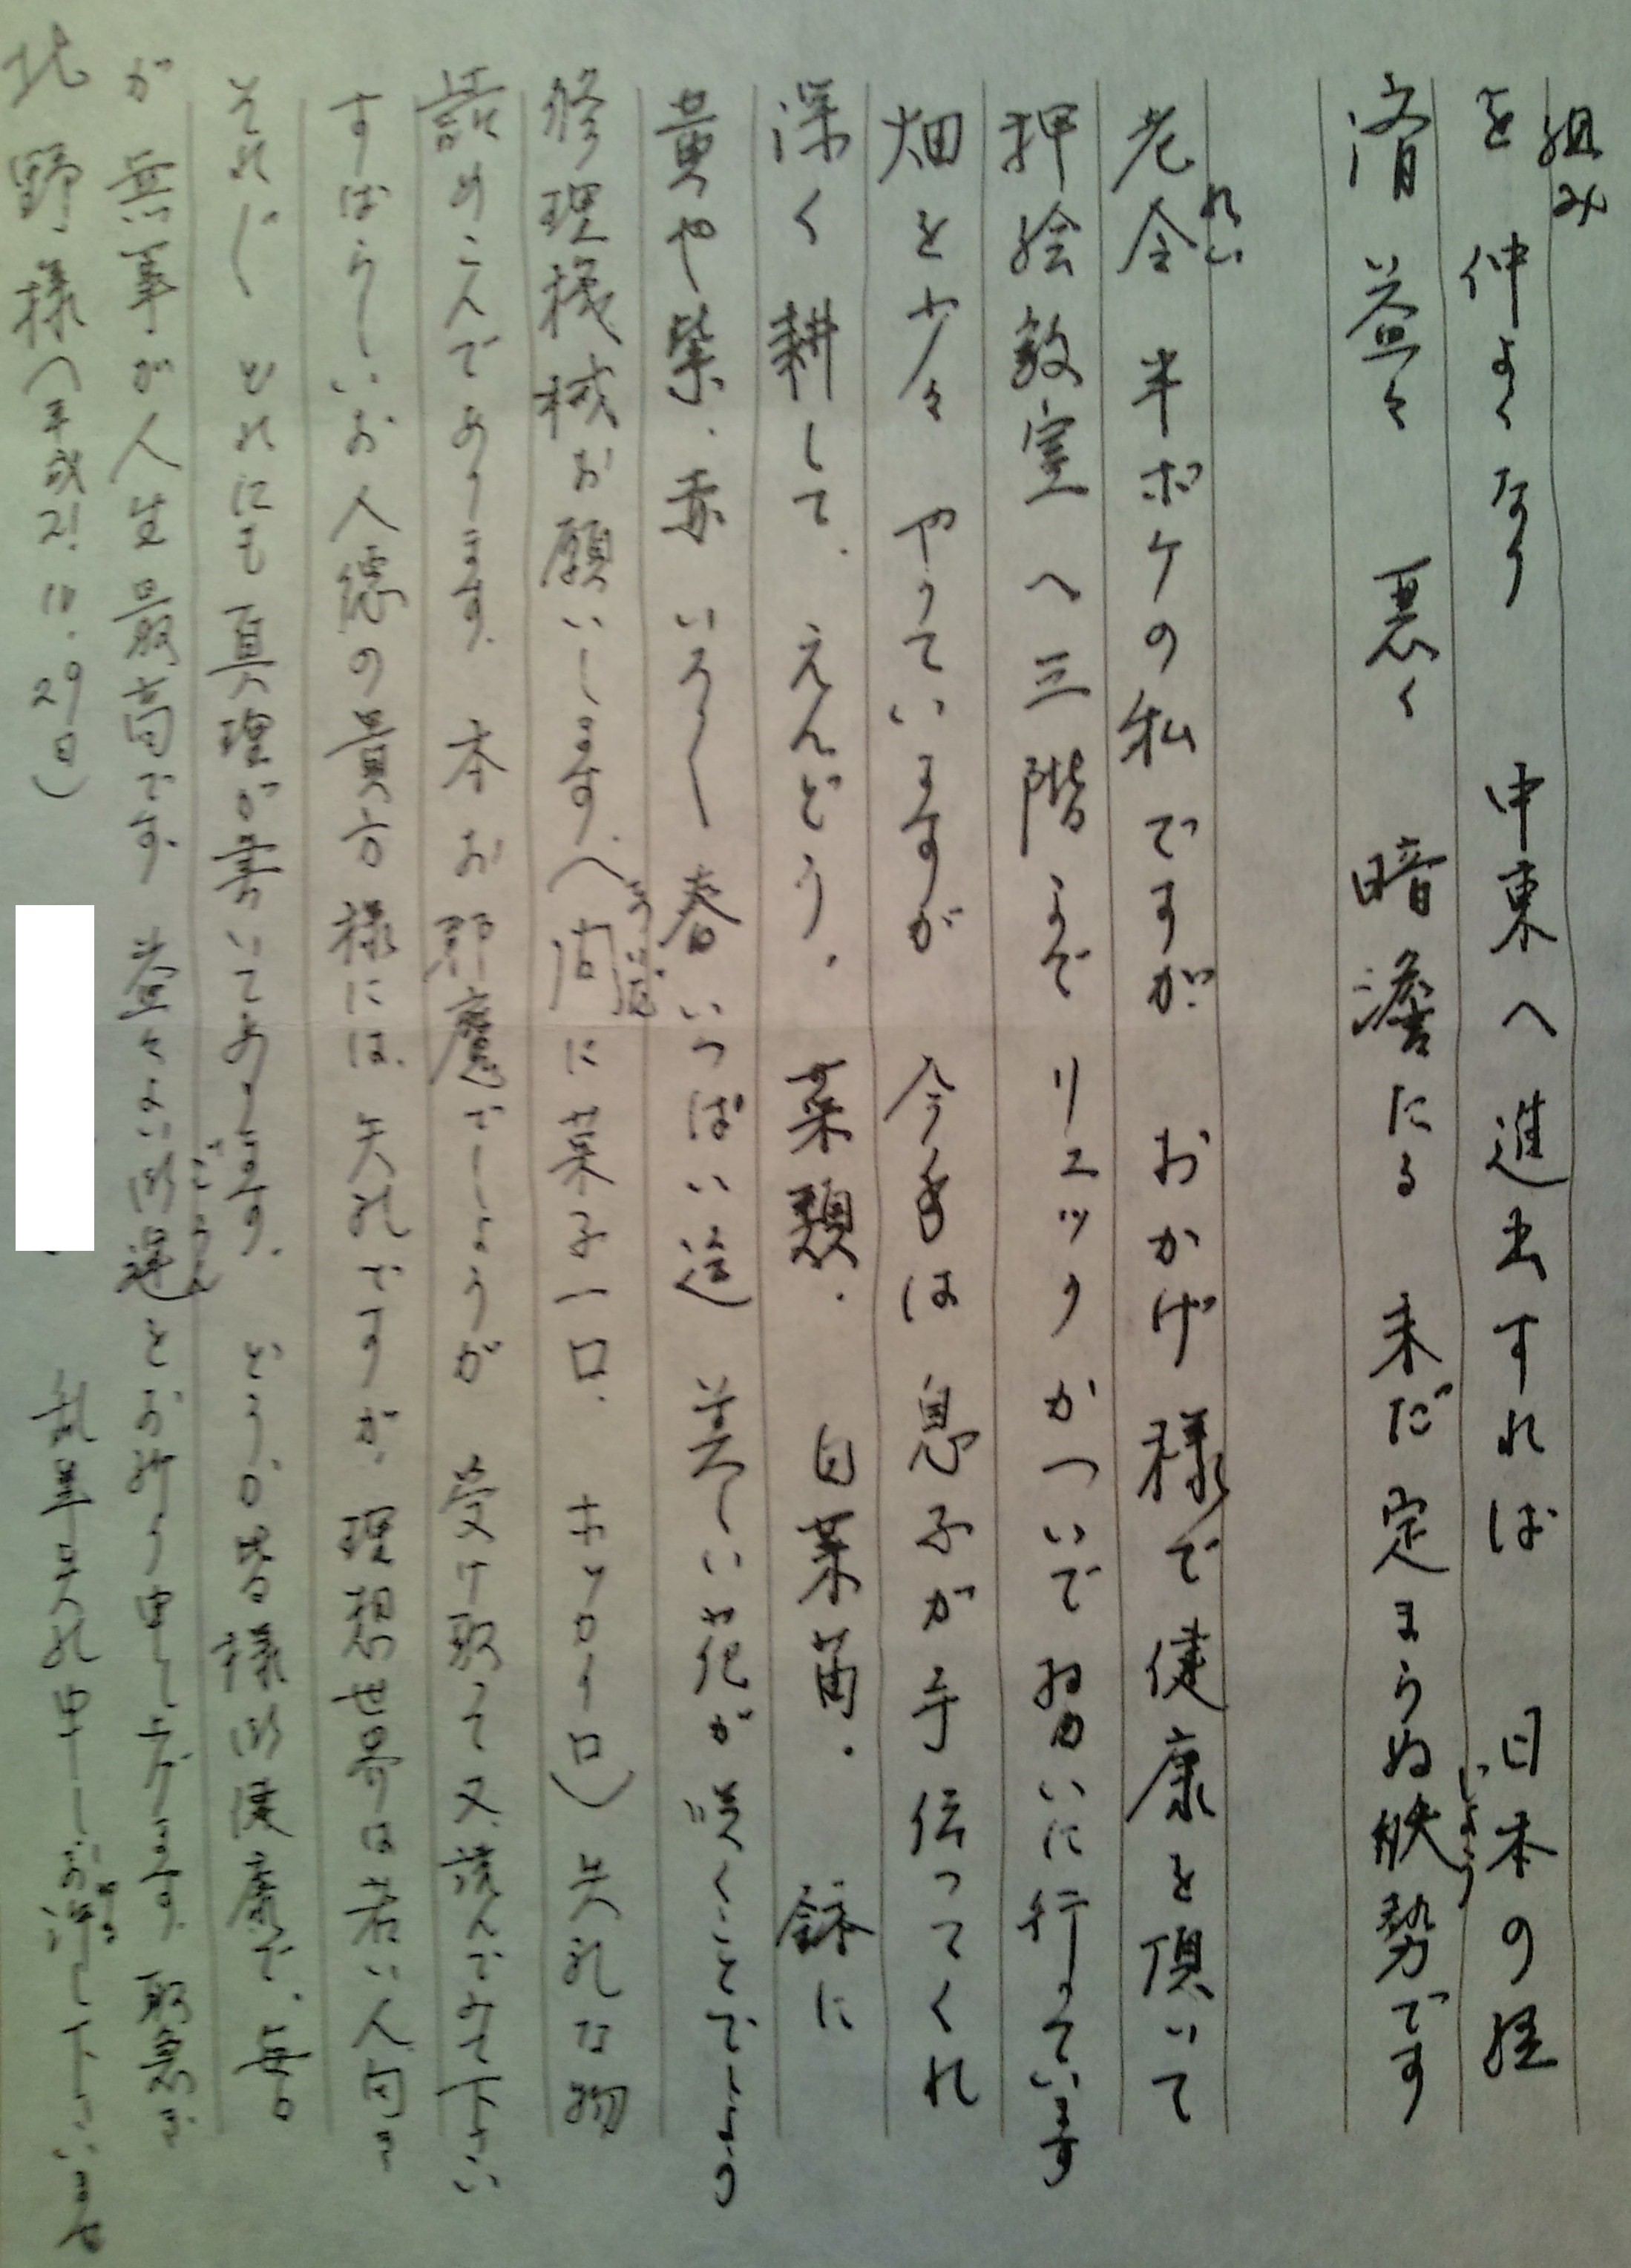 組み
を 仲よくなり 中東へ進出すれば 日本の経
済益々 悪く 暗澹たる 未だ定まらぬ状勢です
じょう
老令 半ボケの私ですが おかげ様で健康を頂いて
れい
押絵教室へ三階まで リュックかついでお習いに行っています
畑を少々 やっていますが 今年は 息子が手伝ってくれ
深く耕して、えんどう、菜類、白菜苗、鉢に
黄や紫、赤 いろ〱 春いっぱい迄 美しい花が咲くことでしょう
修理機械お願いします、(間に菓子一口、ホッカイロ)失礼な物
あいだ
詰めこんであります、本お邪魔でしょうが 受け取って又、読んでみて下さい
すばらしいお人徳の貴方様には、失礼ですが、理想世界は若い人向き
それ〲 どれにも真理が書いてあります、どうか皆様御健康で、毎日
が無事が人生最高です、益々よい御運をお祈り申し上げます、取急ぎ
ごうん
北野様へ(平成21.10.29日)
乱筆失礼申し、お許し下さいませ
ゆる